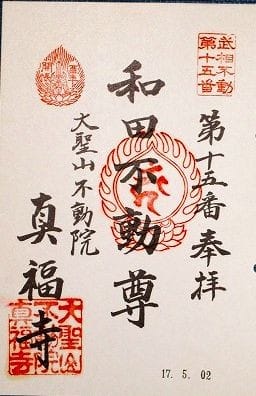 武相不動
第十五番
第十五番奉拝
和田不動尊
大聖山不動院
真福寺
大聖山
不動院
真福寺
17. 5. 02